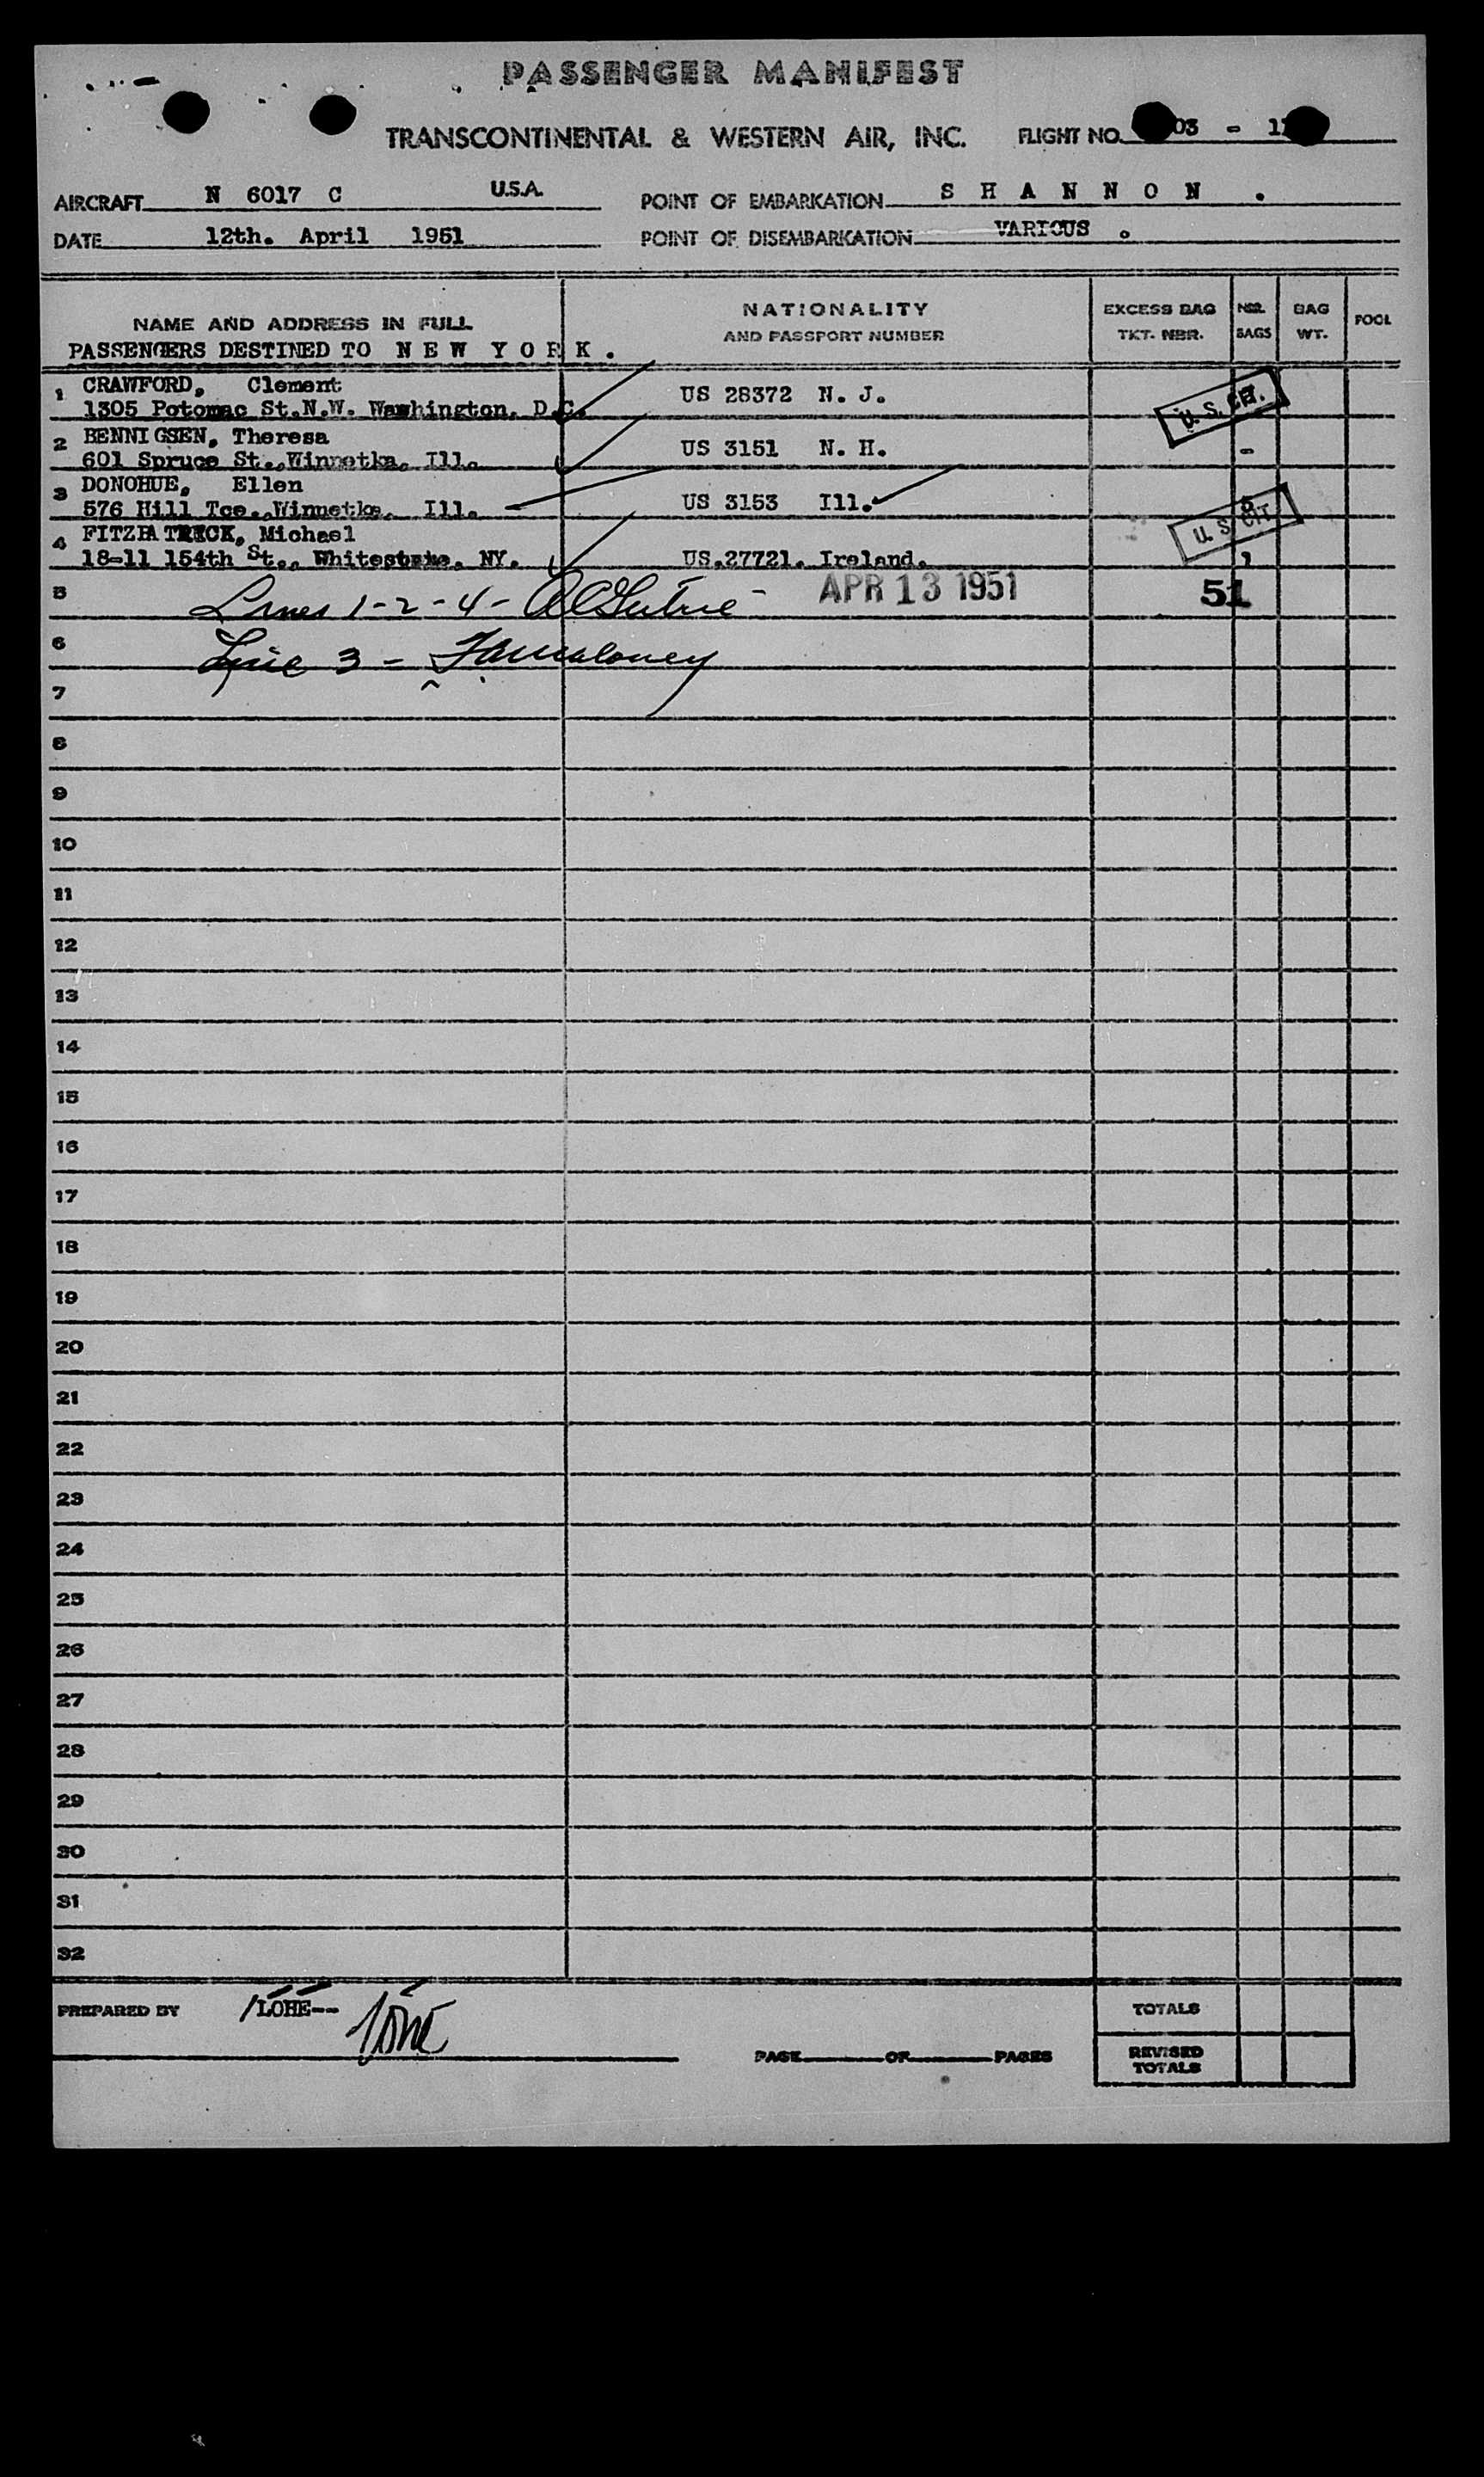 PASSENGER MANIFEST
TRANSCONTINENTAL & WESTERN AIR, INC. FLIGHT NO. 03 - 1
AIRCRAFT N 6017 C U.S.A. POINT OF EMBARKATION S H A N N O N .
DATE 12th. April 1951 POINT OF DISEMBARKATION VARIOUS .
NAME AND ADDRESS IN FULL NATIONALITY AND PASSPORT NUMBER EXCESS BAG TKT. NBR. NBR. BAGS BAG WT. POOL
PASSENGERS DESTINED TO N E W Y O R K .
1 CRAWFORD, Clement US 28372 N. J. U. S. CIT.
1305 Potomac St.N.W. Washington, D.C.
2 BENNIGSEN, Theresa US 3151 N. H. -
601 Spruce St.,Winnetka, Ill.
3 DONOHUE, Ellen US 3153 Ill.
576 Hill Tce.,Winnetka, Ill. U. S. CIT.
4 FITZPATRICK, Michael
18-11 154th St., Whitestone, NY. US.27721. Ireland.
5 Lines 1-2-4- APR 13 1951 51
6 Line 3 -
7
8
9
10
11
12
13
14
15
16
17
18
19
20
21
22
23
24
25
26
27
28
29
30
31
32
PREPARED BY /LOHE-- TOTALS
PAGE OF PAGES REVISED TOTALS